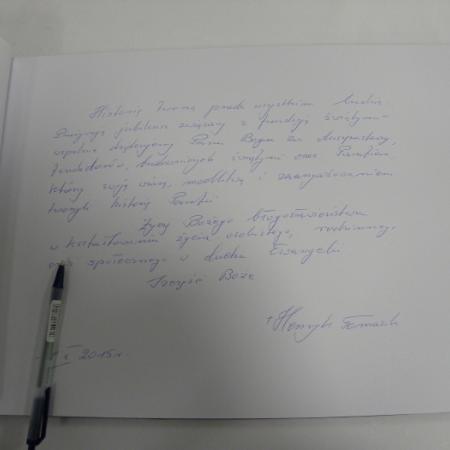 Historię tworzą przede wszystkim ludzie.
jubileusz związany z fundacją świątyni
wspólnie dziękujemy Panu Bogu za Duszpasterzy,
fundatorów, budowniczych świątyni oraz Parafian,
którzy swoją wiarą, modlitwą i zaangażowaniem
tworzyli historię Parafii.
Życzę Bożego błogosławieństwa
w kształtowaniu życia osobistego, rodzinnego
oraz społecznego w duchu Ewangelii
Szczęść Boże
+ Henryk Tomasik
2015 r.